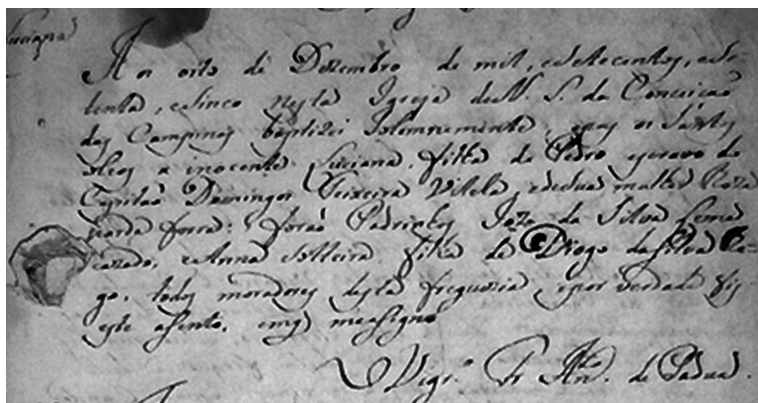 Luciana
Aos oito de Dezembro de mil, e setecentos, e se-
tenta, e sinco nesta Igreja de N. S. da Conceicaõ
das Campinas baptizei solemnemente, e pus os Santos
oleos a inocente Luciana, filha de Pedro escravo do
Capitaõ Domingos Teixeira Villela, e de sua mulher Roza
parda forra: foraõ Padrinhos Joze da Silva Leme
cazado, e Anna solteira filha de Diogo da Silva Re-
go, todos moradores desta freguezia, e por verdade fiz
este asento, em q me asigno
O Vigr.º Fr Ant.º de Padua.